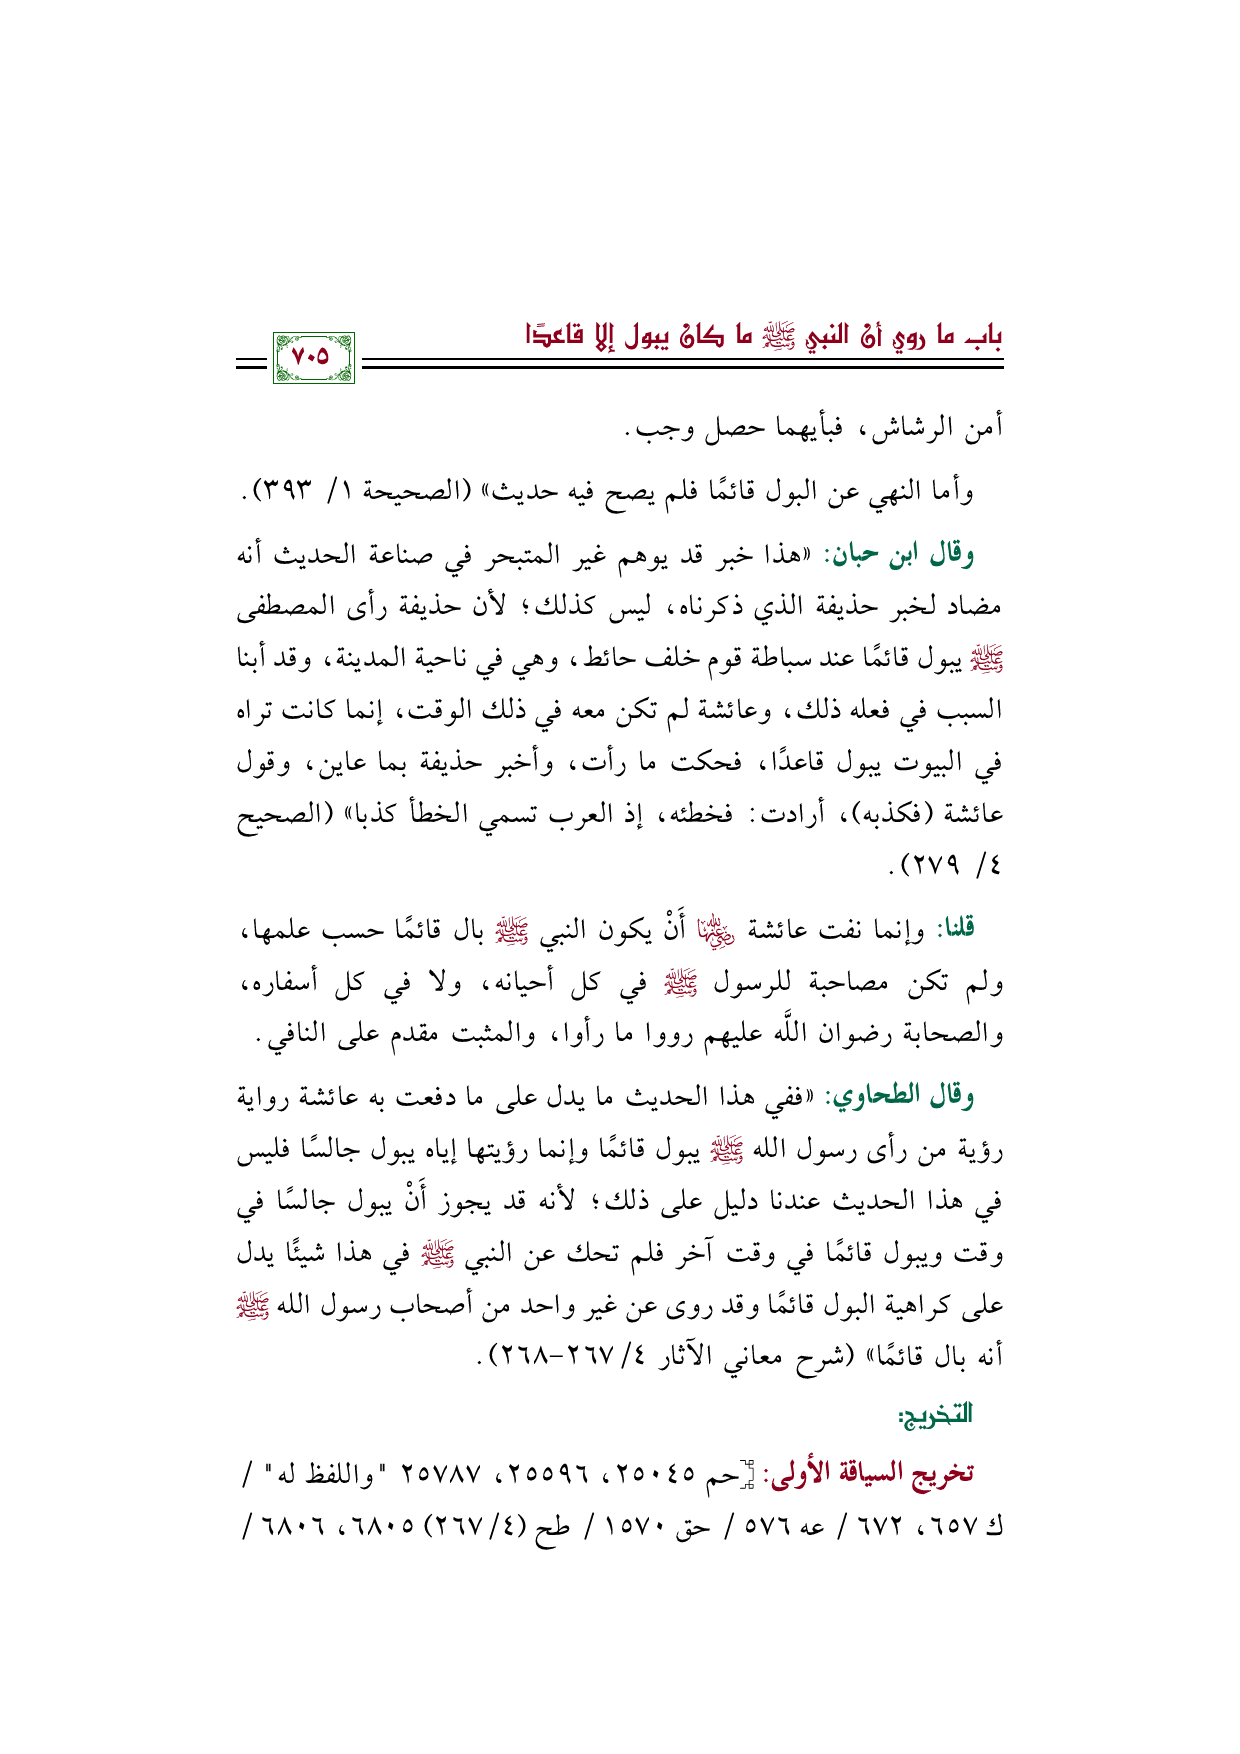 باب ما روي أن النبي ﷺ ما كان يبول إلا قاعدًا
٧٠٥
أمن الرشاش، فبأيهما حصل وجب.
وأما النهي عن البول قائمًا فلم يصح فيه حديث» (الصحيحة ١/ ٣٩٣).
وقال ابن حبان: «هذا خبر قد يوهم غير المتبحر في صناعة الحديث أنه
مضاد لخبر حذيفة الذي ذكرناه، ليس كذلك؛ لأن حذيفة رأى المصطفى
ﷺ يبول قائمًا عند سباطة قوم خلف حائط، وهي في ناحية المدينة، وقد أبنا
السبب في فعله ذلك، وعائشة لم تكن معه في ذلك الوقت، إنما كانت تراه
في البيوت يبول قاعدًا، فحكت ما رأت، وأخبر حذيفة بما عاين، وقول
عائشة (فكذبه)، أرادت: فخطئه، إذ العرب تسمي الخطأ كذبا» (الصحيح
٤/ ٢٧٩).
قلنا: وإنما نفت عائشة رضي الله عنها أَنْ يكون النبي ﷺ بال قائمًا حسب علمها،
ولم تكن مصاحبة للرسول ﷺ في كل أحيانه، ولا في كل أسفاره،
والصحابة رضوان اللَّه عليهم رووا ما رأوا، والمثبت مقدم على النافي.
وقال الطحاوي: «ففي هذا الحديث ما يدل على ما دفعت به عائشة رواية
رؤية من رأى رسول الله ﷺ يبول قائمًا وإنما رؤيتها إياه يبول جالسًا فليس
في هذا الحديث عندنا دليل على ذلك؛ لأنه قد يجوز أَنْ يبول جالسًا في
وقت ويبول قائمًا في وقت آخر فلم تحك عن النبي ﷺ في هذا شيئًا يدل
على كراهية البول قائمًا وقد روى عن غير واحد من أصحاب رسول الله ﷺ
أنه بال قائمًا» (شرح معاني الآثار ٤/ ٢٦٧-٢٦٨).
التخريج:
تخريج السياقة الأولى: [حم ٢٥٠٤٥، ٢٥٥٩٦، ٢٥٧٨٧ "واللفظ له" /
ك ٦٥٧، ٦٧٢ / عه ٥٧٦ / حق ١٥٧٠ / طح (٤/ ٢٦٧) ٦٨٠٥، ٦٨٠٦ /